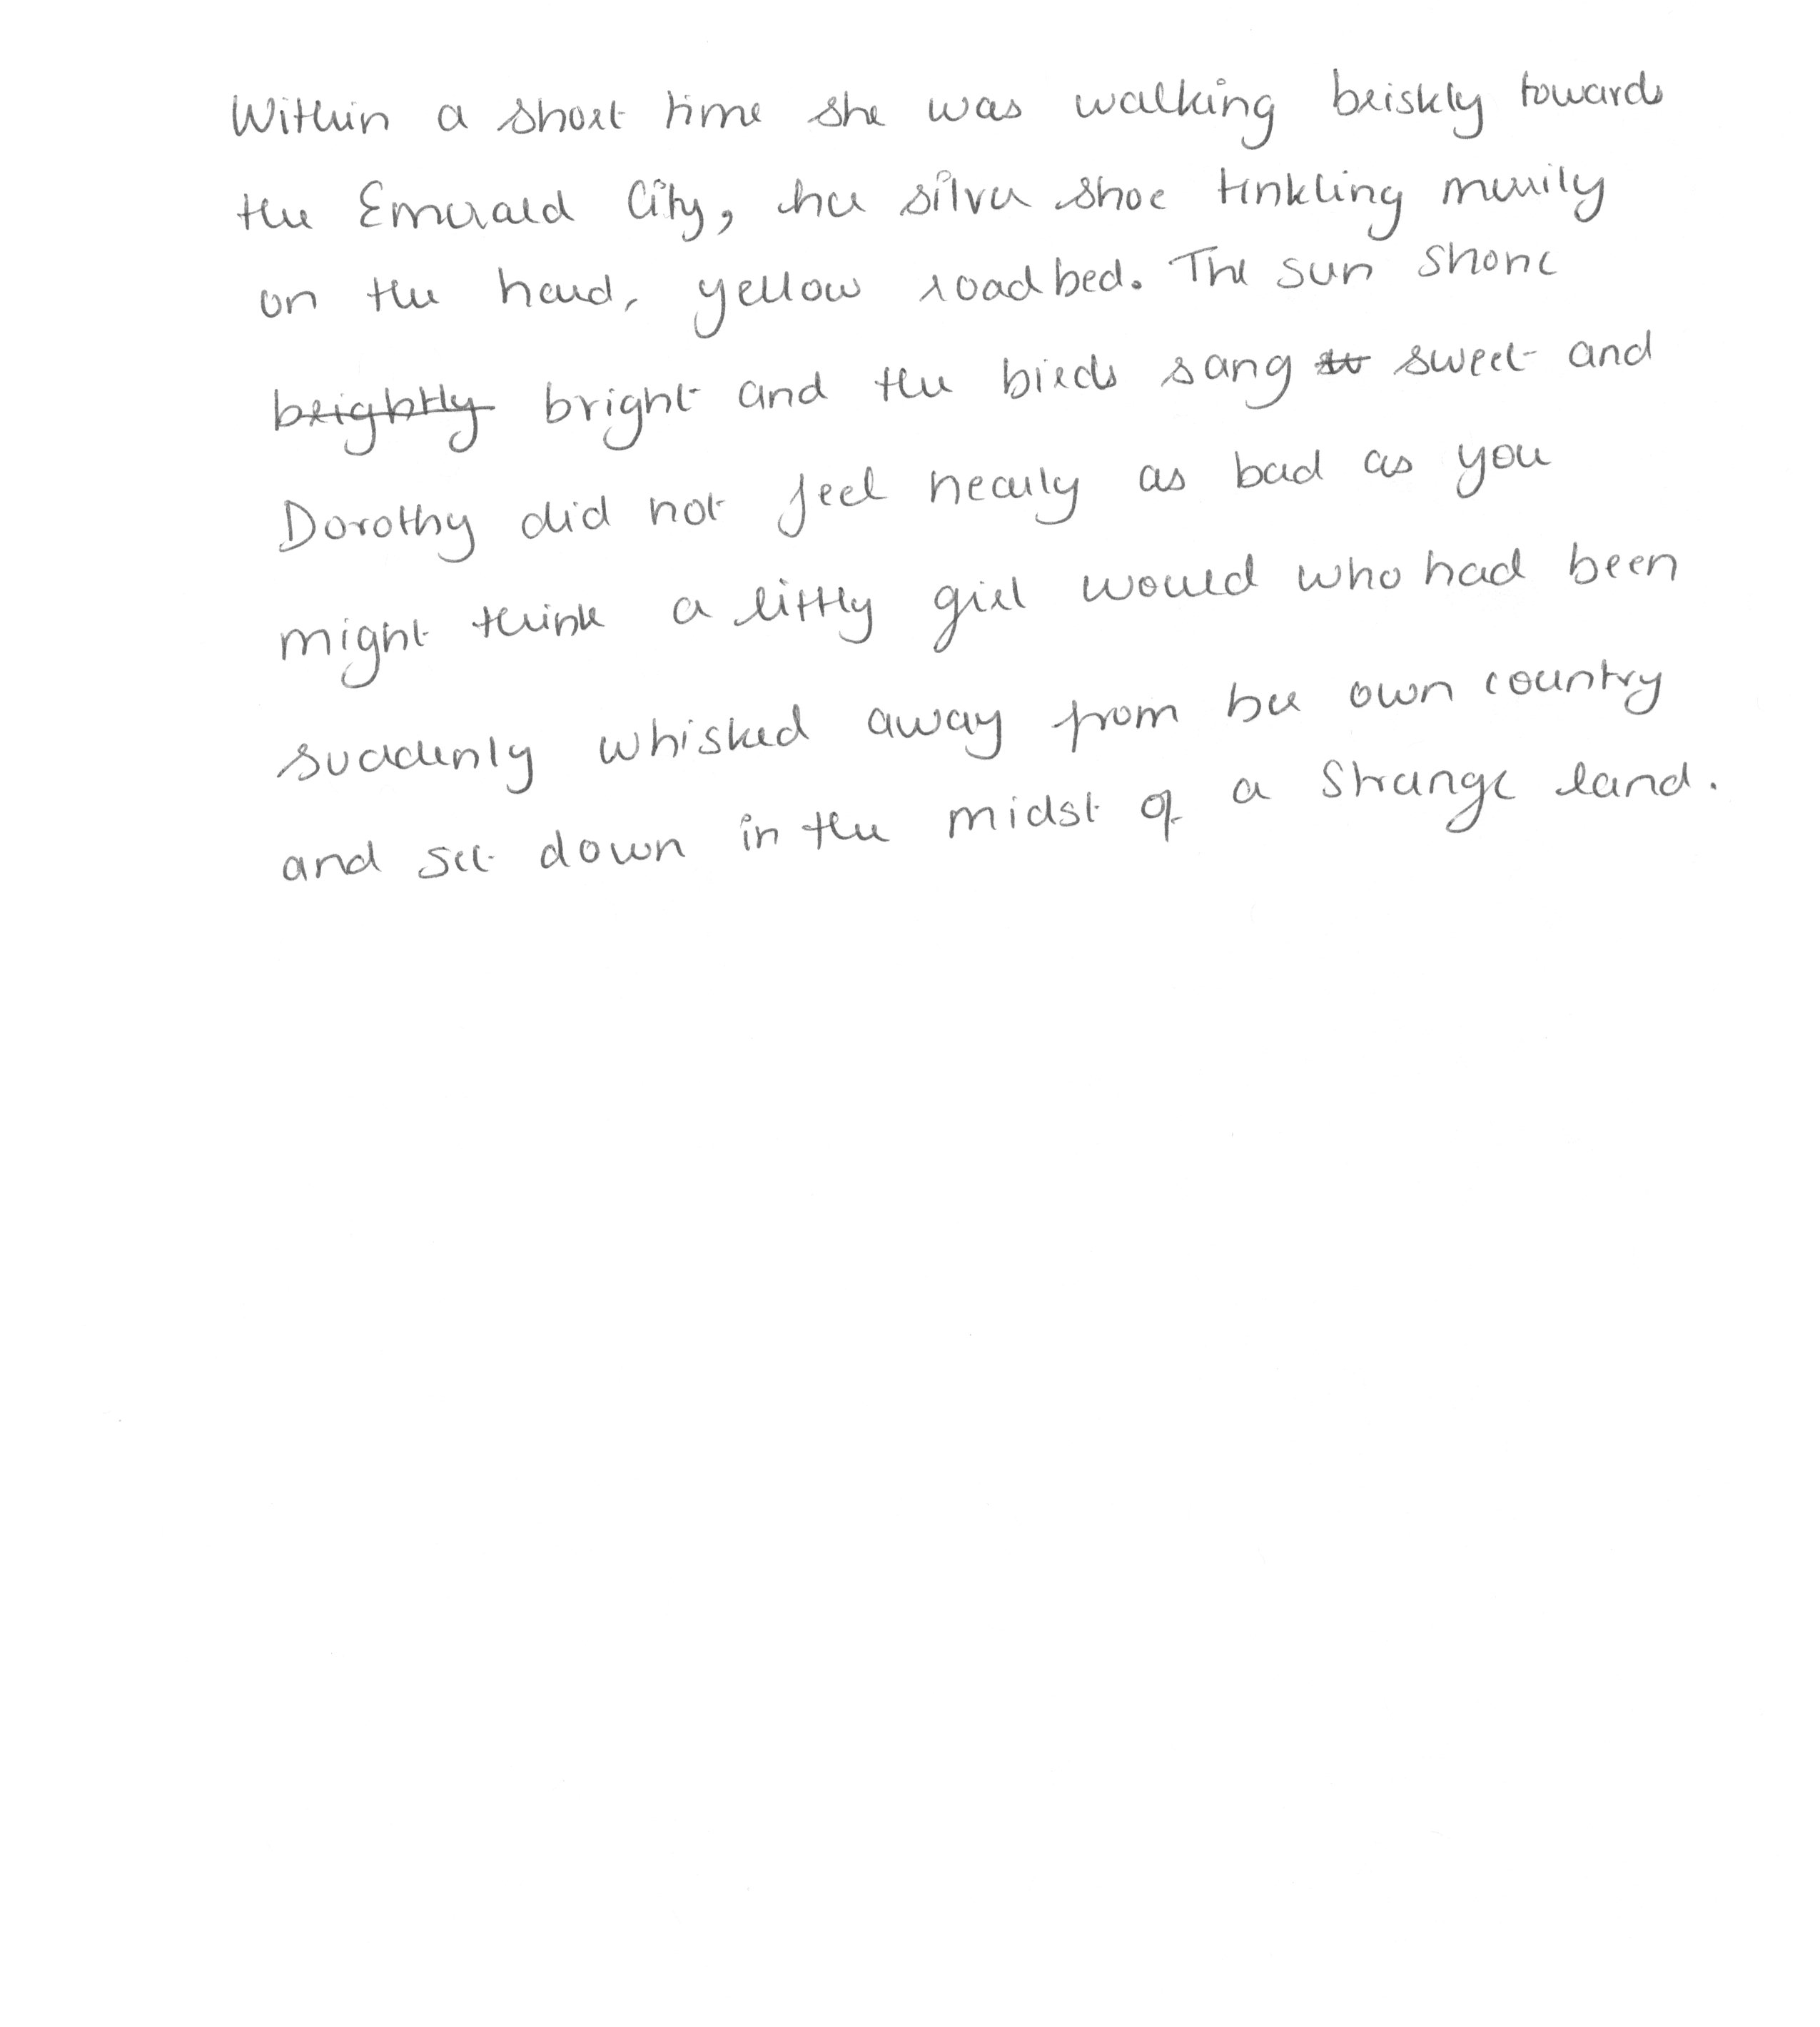 Within a short time she was walking briskly towards
the Emerald City, her silver shoe tinkling merrily
on the hard, yellow roadbed. The sun shone
brightly bright and the birds sang sw sweet and
Dorothy did not feel nearly as bad as you
might think a littly girl would who had been
suddenly whisked away from her own country
and set down in the midst of a strange land.